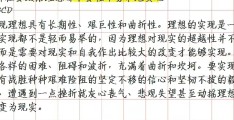 CD
现理想具有长期性、艰巨性和曲折性。理想的实现是一
实现都不是轻而易举的，因为理想对现实的超越性并不
而是需要对现实和自我作出比较大的改变才能够实现。
各样的困难、阻碍和波折，充满着曲折和坎坷。要实现
有战胜种种艰难险阻的坚定不移的信心和坚韧不拔的毅
，遭遇到一点挫折就灰心丧气、悲观失望甚至动摇理想
变为现实。